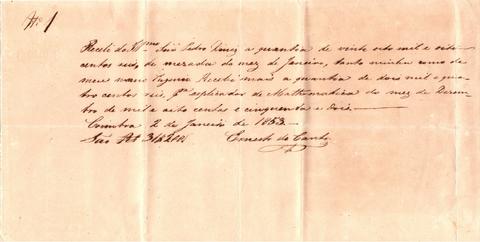 Nº 1
Recebi do Illmo Snr Pedro Diniz a quantia de vinte oito mil e oito
centos reis, de mezadas do mez de Janeiro, tanto minha como de
meu mano Recebi mais a quantia de dois mil e qua
tro centos reis pª explicador de Mathematica do mez de Dezem
bro de mil oito centos e cincoenta e dois
Coimbra 2 de Janeiro de 1853
São 31$200 Ernesto do Canto